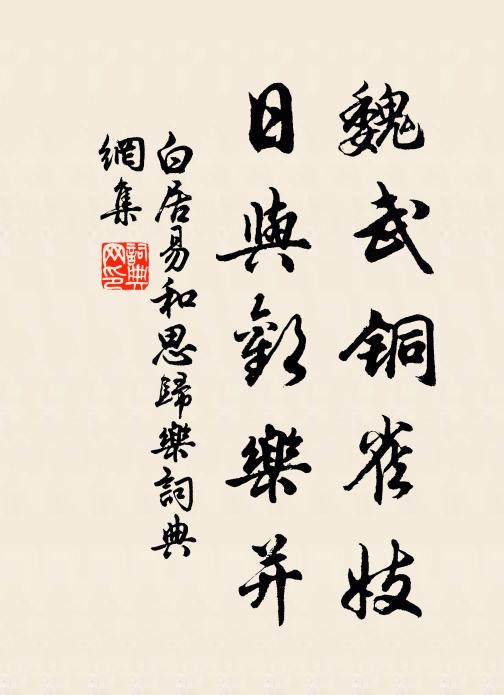 魏武铜雀妓
日與歡樂并
白居易和思歸樂詞典
網集
詞典网印